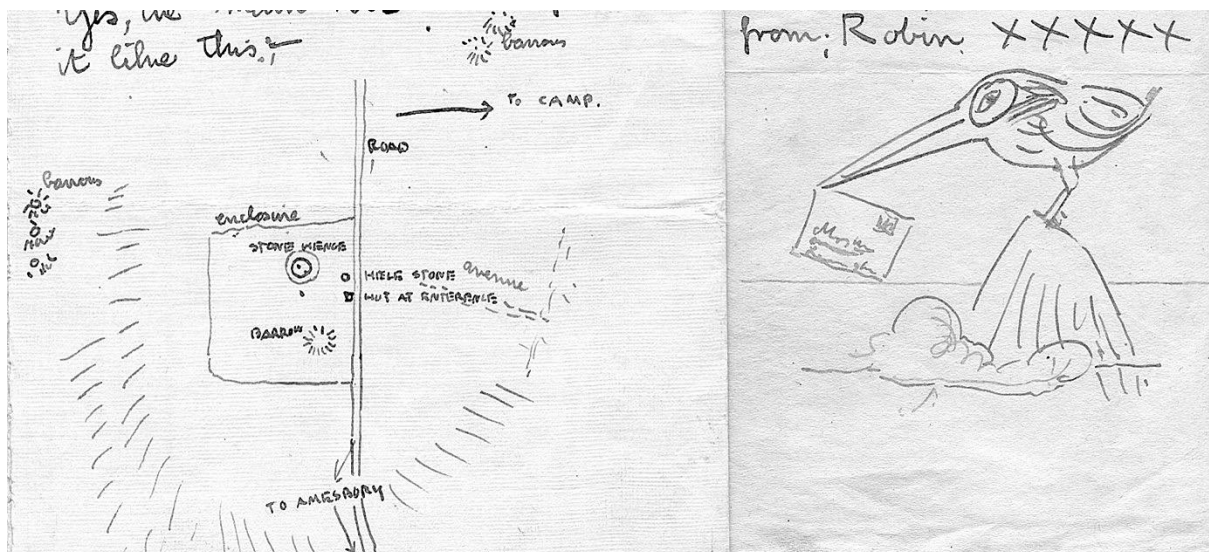 Yes, the
it like this:—
barrows
TO CAMP.
ROAD
barrows
enclosure
STONE HENGE
HIELE STONE
avenue
HUT AT ENTERENCE
BARROW
TO AMESBURY
from; Robin X X X X X